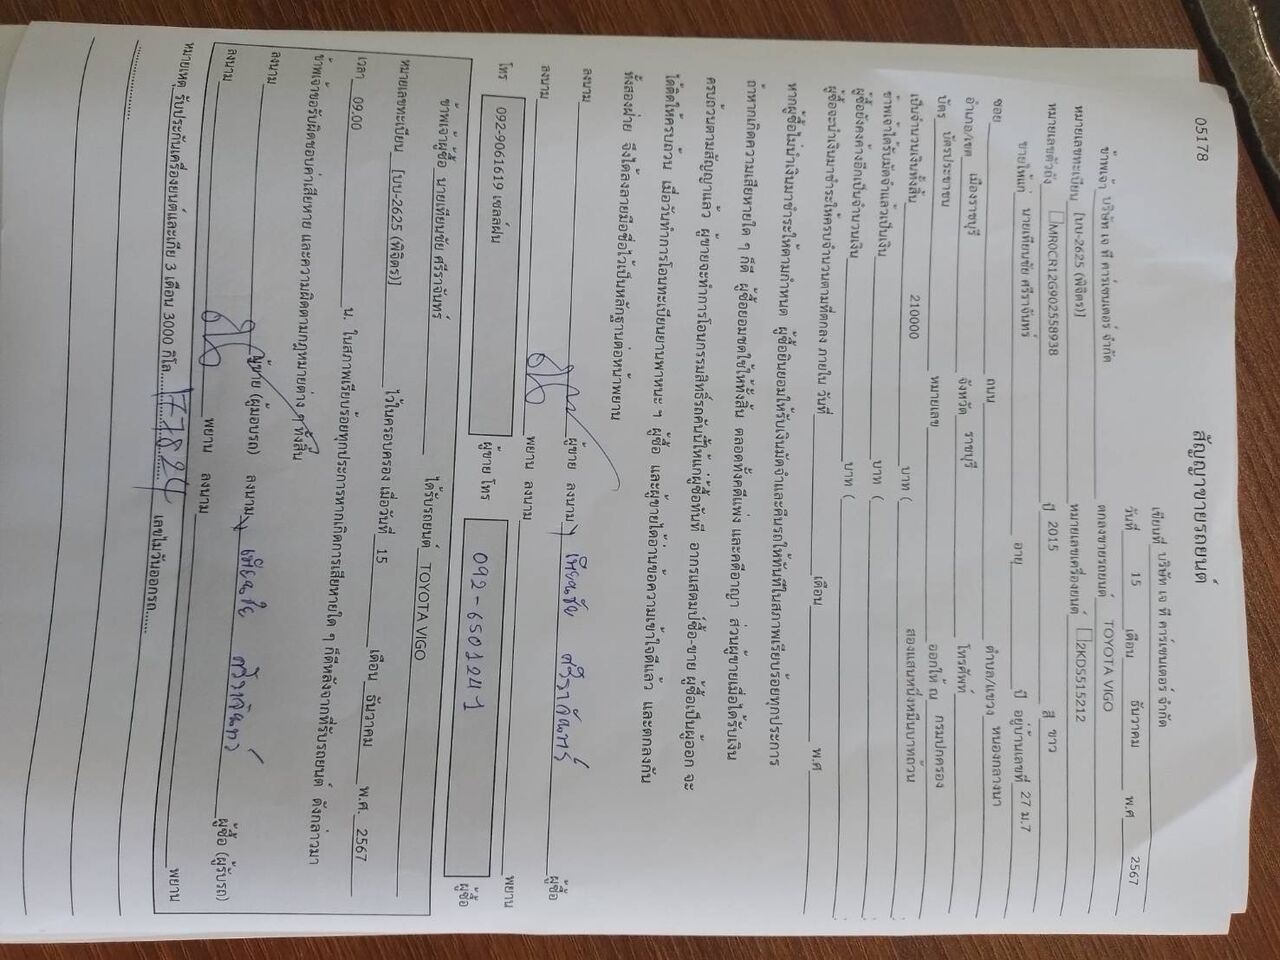 05178
สัญญาขายรถยนต์
เขียนที่ บริษัท เจ ที คาร์เซนเตอร์ จำกัด
วันที่ 15 เดือน ธันวาคม พ.ศ 2567
ข้าพเจ้า บริษัท เจ ที คาร์เซนเตอร์ จำกัด ตกลงขายรถยนต์ TOYOTA VIGO
หมายเลขทะเบียน [บบ-2625 (พิจิตร)] ปี 2015 สี ขาว
หมายเลขตัวถัง MR0CR12G902558938 หมายเลขเครื่องยนต์ 2KDS515212
ขายให้แก่ นายเทียนชัย ศรีราจันทร์ อายุ ปี อยู่บ้านเลขที่ 27 ม.7
ซอย ถนน ตำบล/แขวง หนองกลางนา
อำเภอ/เขต เมืองราชบุรี จังหวัด ราชบุรี โทรศัพท์
บัตร บัตรประชาชน หมายเลข ออกให้ ณ กรมปกครอง
เป็นจำนวนเงินทั้งสิ้น 210000 บาท ( สองแสนหนึ่งหมื่นบาทถ้วน
ข้าพเจ้าได้รับมัดจำแล้วเป็นเงิน บาท (
ผู้ซื้อยังคงค้างอีกเป็นจำนวนเงิน บาท (
ผู้ซื้อจะนำเงินมาชำระให้ครบจำนวนตามที่ตกลง ภายใน วันที่ เดือน พ.ศ
หากผู้ซื้อไม่นำเงินมาชำระให้ตามกำหนด ผู้ซื้อยินยอมให้รับเงินมัดจำและคืนรถให้ทันทีในสภาพเรียบร้อยทุกประการ
ถ้าหากเกิดความเสียหายใด ๆ ก็ดี ผู้ซื้อยอมชดใช้ให้ทั้งสิ้น ตลอดทั้งคดีแพ่ง และคดีอาญา ส่วนผู้ขายเมื่อได้รับเงิน
ครบถ้วนตามสัญญาแล้ว ผู้ขายจะทำการโอนกรรมสิทธิ์รถคันนี้ให้แก่ผู้ซื้อทันที อากรแสตมป์ซื้อ-ขาย ผู้ซื้อเป็นผู้ออก จะ
ได้คิดให้ครบถ้วน เมื่อวันทำการโอนทะเบียนยานพาหนะ ๆ ผู้ซื้อ และผู้ขายได้อ่านข้อความเข้าใจดีแล้ว และตกลงกัน
ทั้งสองฝ่าย จึงได้ลงลายมือชื่อไว้เป็นหลักฐานต่อหน้าพยาน
ลงนาม ผู้ขาย ลงนาม เทียนชัย ศรีราจันทร์ ผู้ซื้อ
ลงนาม พยาน ลงนาม พยาน
โทร 092-9061619 เซลล์ฝน ผู้ขาย โทร 092-6501247 ผู้ซื้อ
ผู้ซื้อ
ข้าพเจ้าผู้ซื้อ นายเทียนชัย ศรีราจันทร์ ได้รับรถยนต์ TOYOTA VIGO
หมายเลขทะเบียน [บบ-2625 (พิจิตร)] ไว้ในครอบครอง เมื่อวันที่ 15 เดือน ธันวาคม พ.ศ. 2567
เวลา 09.00 น. ในสภาพเรียบร้อยทุกประการหากเกิดการเสียหายใด ๆ ก็ดีหลังจากที่รับรถยนต์ ดังกล่าวมา
ข้าพเจ้าขอรับผิดชอบค่าเสียหาย และความผิดตามกฎหมายต่าง ๆ ทั้งสิ้น
ลงนาม ผู้ขาย (ผู้มอบรถ) ลงนาม เทียนชัย ศรีราจันทร์ ผู้ซื้อ (ผู้รับรถ)
ลงนาม พยาน ลงนาม พยาน
หมายเหตุ รับประกันเครื่องยนต์และเกีย 3 เดือน 3000 กิโล 177824 เลขไมวันออกรถ